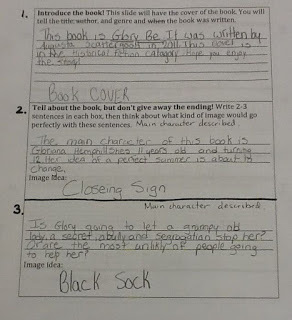 1. Introduce the book! This slide will have the cover of the book. You will
tell the title, author, and genre and when the book was written.
This book is Glory Be. It was written by
Augusta Scattergood in 2011. This novel is
in the Historical Fiction catagory. Hope you enjoy
the story!
Book COVER
2. Tell about the book, but don't give away the ending! Write 2-3
sentences in each box, then think about what kind of image would go
perfectly with these sentences. Main character described
The main character of this book is
Gloriana Hemphill. Shes 11 years old and turning
12. Her idea of a perfect summer is about to
change.
Image Idea:
Closeing Sign
3. Main character described
Is Glory going to let a grumpy old
lady, a secret, a bully and segregation stop her?
Or are the most unlikly of people going
to help her?
Image idea:
Black Sock